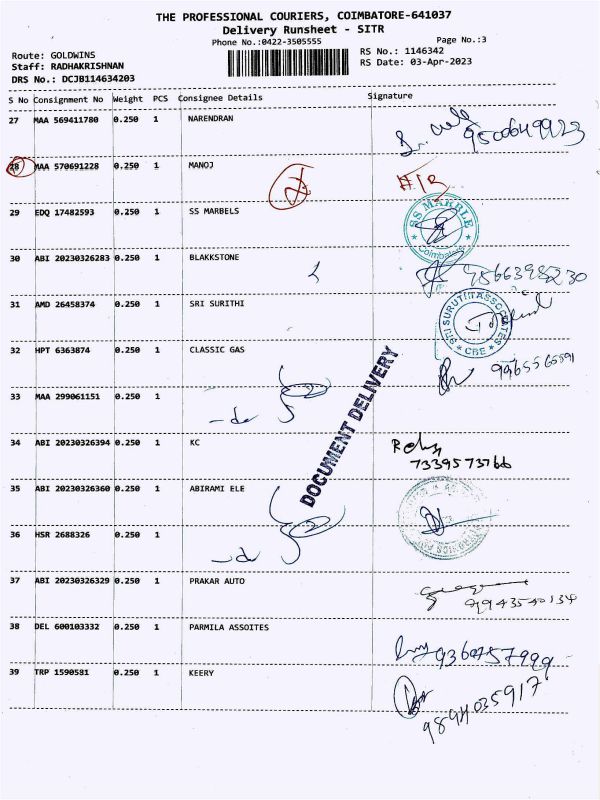 THE PROFESSIONAL COURIERS, COIMBATORE-641037
Delivery Runsheet - SITR
Phone No.:0422-3505555 Page No.:3
Route: GOLDWINS RS No.: 1146342
Staff: RADHAKRISHNAN RS Date: 03-Apr-2023
DRS No.: DCJB114634203
S No Consignment No Weight PCS Consignee Details Signature
27 MAA 569411780 0.250 1 NARENDRAN
28 MAA 570691228 0.250 1 MANOJ
29 EDQ 17482593 0.250 1 SS MARBELS
SS MARBLE
Coimbatore
30 ABI 20230326283 0.250 1 BLAKKSTONE
31 AMD 26458374 0.250 1 SRI SURITHI
SRI SURUTI ASSOCIATES
CBE
32 HPT 6363874 0.250 1 CLASSIC GAS
DOCUMENT DELIVERY
33 MAA 299061151 0.250 1
34 ABI 20230326394 0.250 1 KC
7339573766
35 ABI 20230326360 0.250 1 ABIRAMI ELE
36 HSR 2688326 0.250 1
37 ABI 20230326329 0.250 1 PRAKAR AUTO
9943540134
38 DEL 600103332 0.250 1 PARMILA ASSOITES
9360757999
39 TRP 1590581 0.250 1 KEERY
9894035917